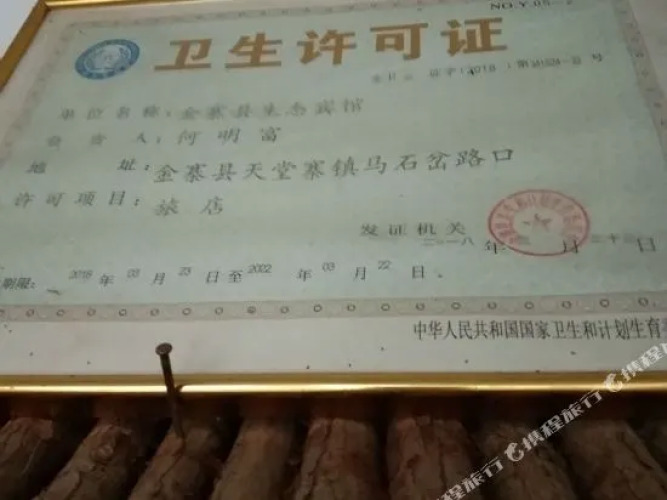 卫生许可证
单位名称：金寨县生态宾馆
负责人：何明富
地址：金寨县天堂寨镇马石岔路口
许可项目：旅店
发证机关
二〇一八年 月二十三日
期限： 2018年03月23日至2022年03月22日。
中华人民共和国国家卫生和计划生育
携程旅行
携程旅行